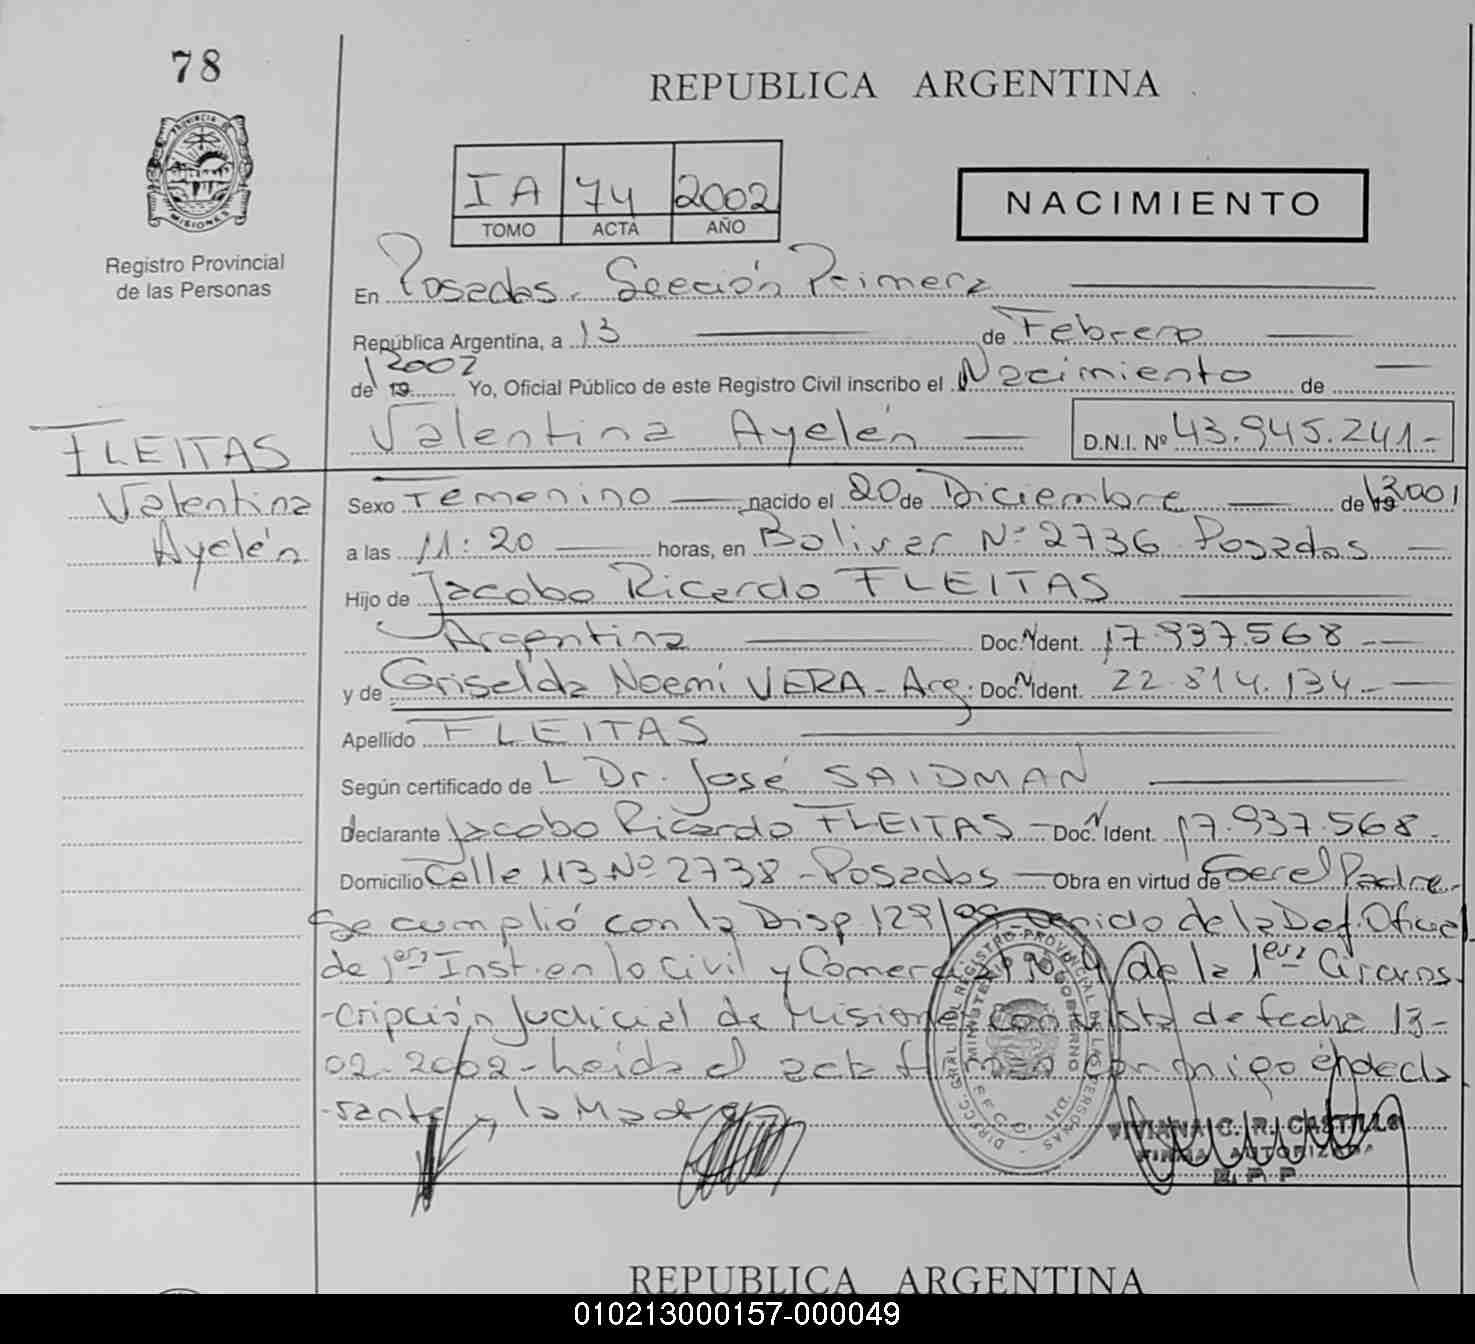 78
REPUBLICA ARGENTINA
PROVINCIA DE
MISIONES
IA 74 2002
TOMO ACTA AÑO
NACIMIENTO
Registro Provincial
de las Personas
En Posadas. Sección Primera
República Argentina, a 13 de Febrero
de 19 2002 Yo, Oficial Público de este Registro Civil inscribo el Nacimiento de
FLEITAS
Valentina Ayelén D.N.I. Nº 43.945.241-
Valentina
Ayelén
Sexo Femenino nacido el 20 de Diciembre de 19 2001
a las 11:20 horas, en Bolivar Nº 2736 Posadas
Hijo de Jacobo Ricardo FLEITAS
Argentina Doc.N Ident. 17.937.568
y de Griselda Noemí VERA - Arg. Doc.N Ident. 22.814.134
Apellido FLEITAS
Según certificado de L Dr. José SAIDMAN
Declarante Jacobo Ricardo FLEITAS Doc.N Ident. 17.937.568
Domicilio Calle 113 Nº 2738 - Posadas Obra en virtud de Ser el Padre
Se cumplió con la Disp. 129/ de la Def. Oficial
de 1era Inst. en lo Civil y Comercial Nº 4 de la 1era Circuns
-cripción Judicial de Misiones con vista de fecha 13-
02-2002- Leída el acta firman conmigo el decla
-rante y la Madre
DIRECC. GRAL. DEL REGISTRO PROVINCIAL DE LAS PERSONAS
MINISTERIO DE GOBIERNO
VIVIANA C. R. CASTILLO
FIRMA AUTORIZADA
R. P. P.
REPUBLICA ARGENTINA
010213000157-000049